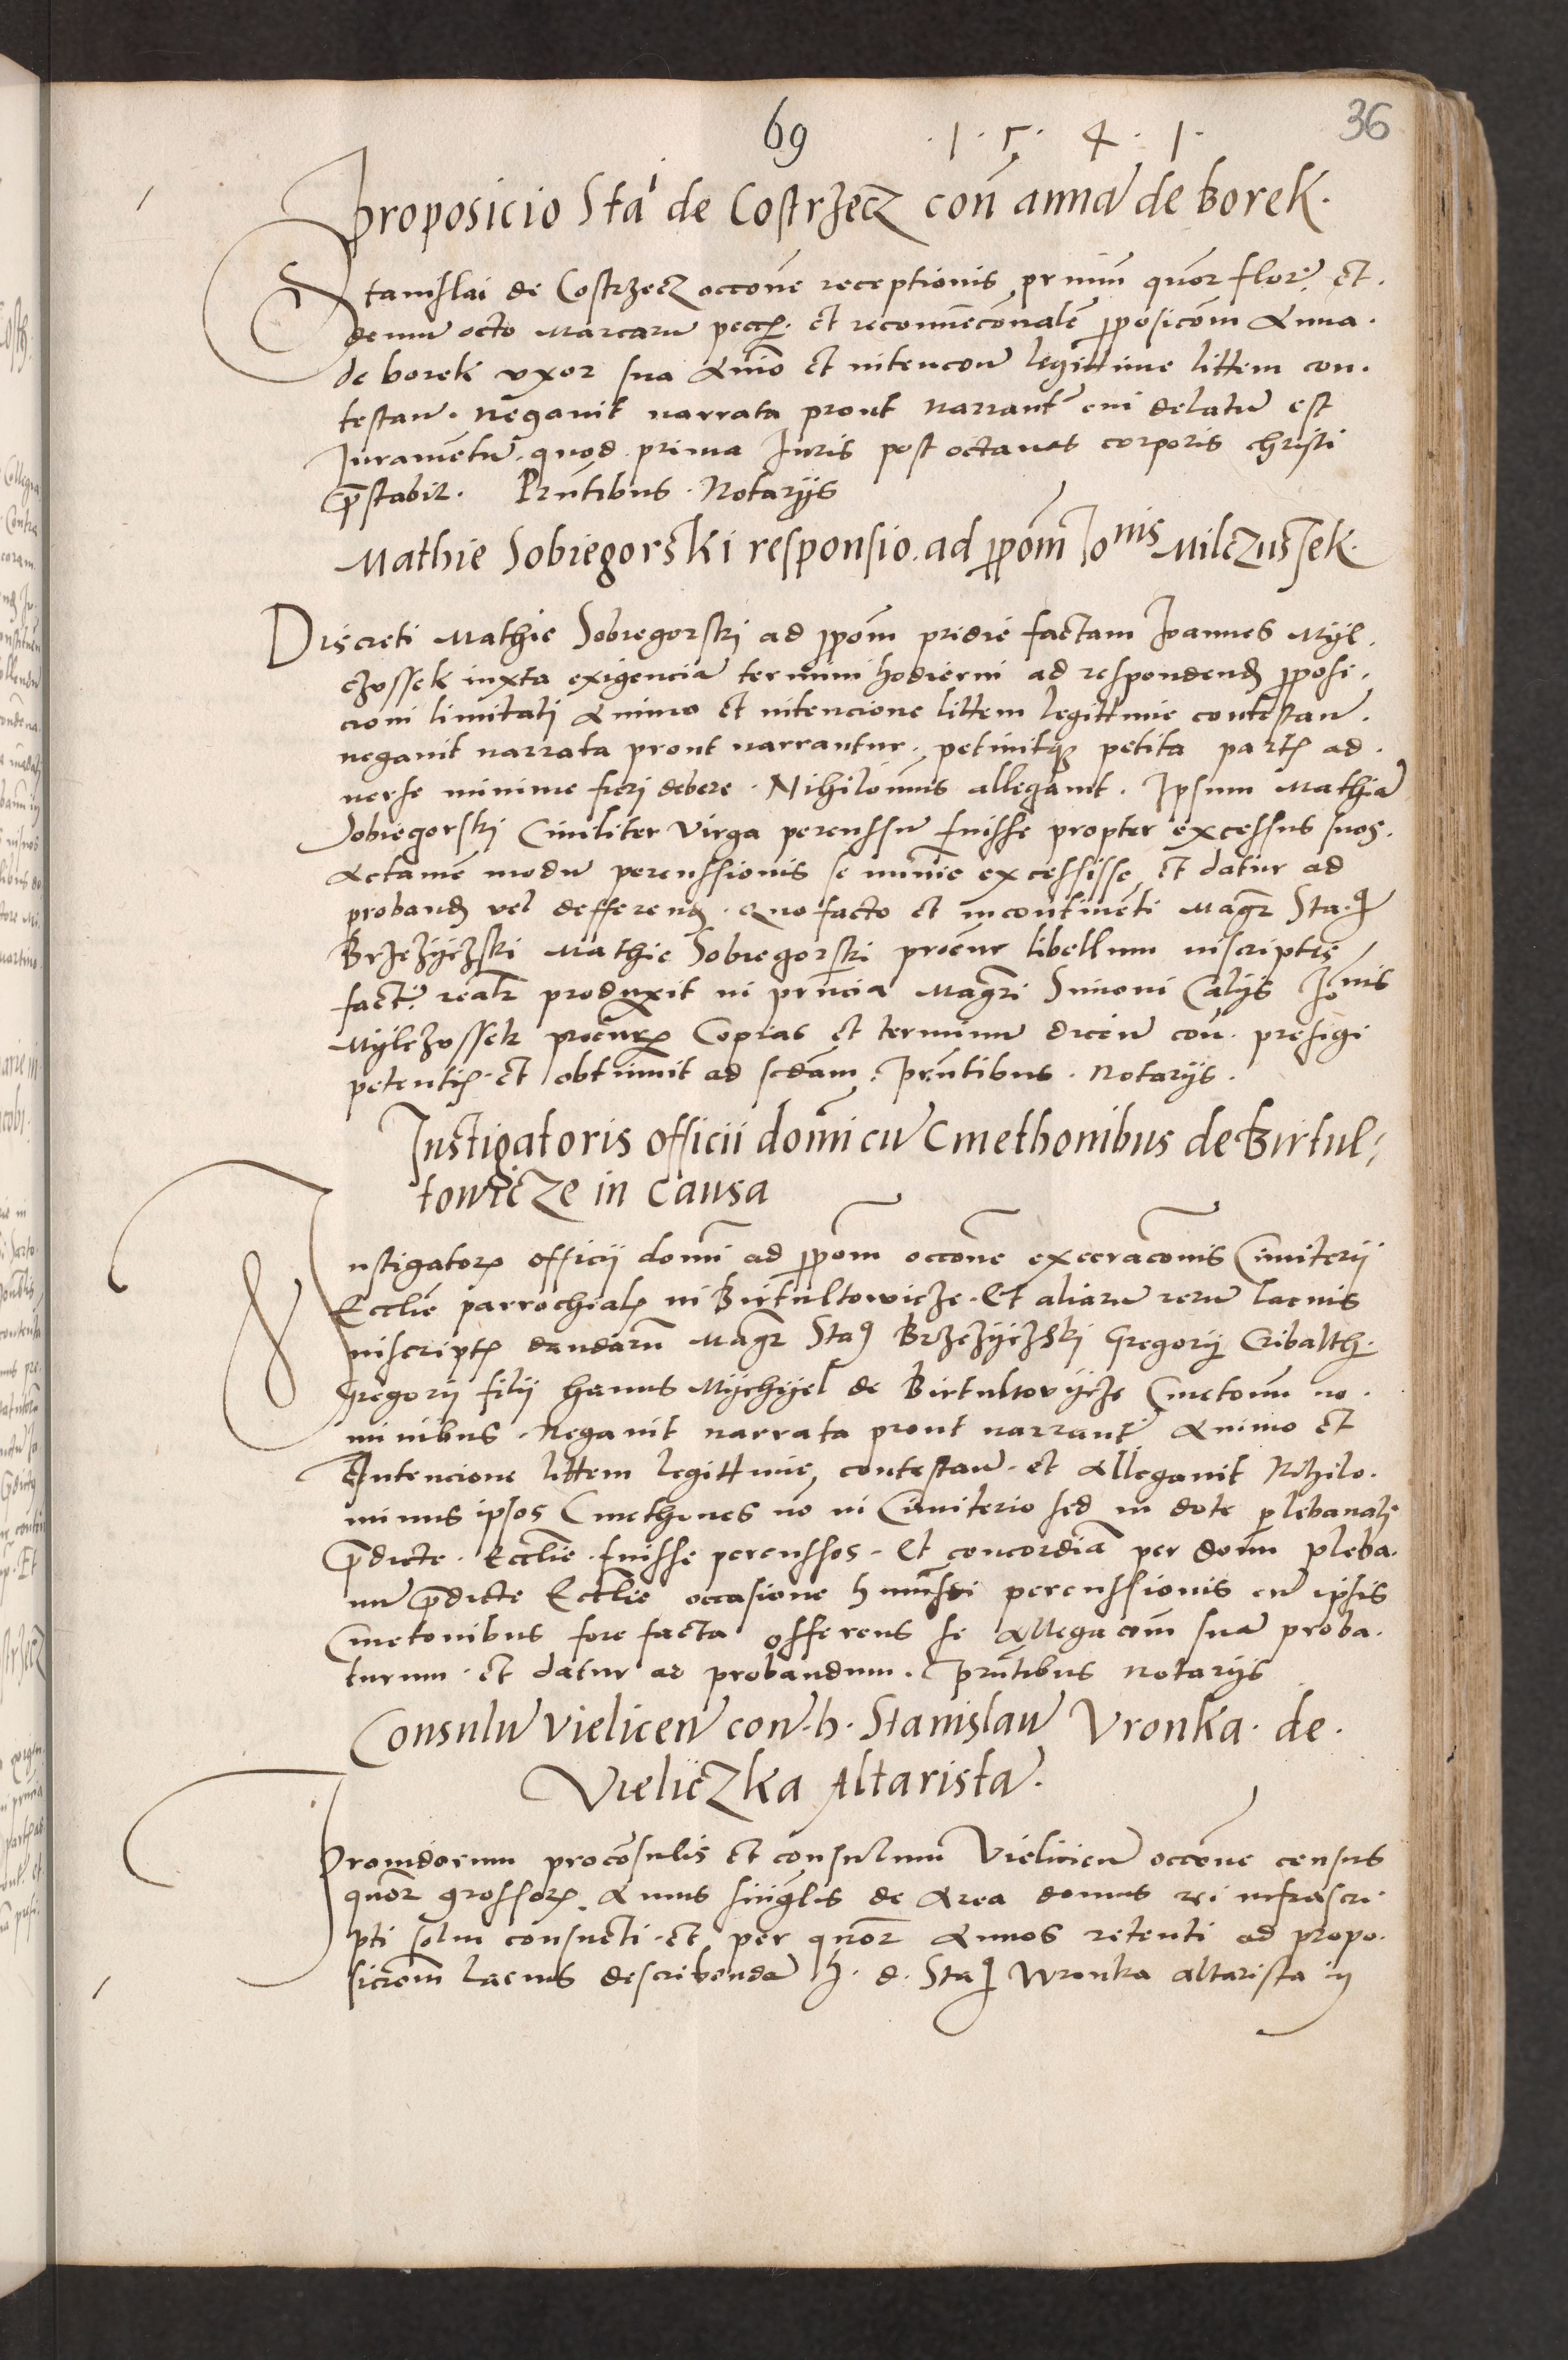 69 · 1 · 5 · 4 · 1 · 36
Proposicio Sta^i de Costrzecz con̄ annā de borek.
Stanislai de Costrzecz occōne receptionis prmiū quor flor. et.
demū octo marcarū pecc̄. et reconuēcōnalē p̱posicōm Anna.
de borek vxor sua Anīo et intencōn̄ legittime littem con.
testan̄. neganit narrata prout narrant̄ cui delatū est
Juramentū. quod prima Juris post octauas corporis christi
p̄stabit. Prn̄tibus. Notarijs
Mathie Sobiegorski responsio. ad p̱pom̄ Jo^nis Milczussek.
Discreti Mathie Sobiegorski ad p̱pom̄ pridie factam Joannes Mÿl.
czossek iuxta exigenciā termini hodierni ad respondend̄ p̱posi.
cioni limitati Animo et intencione littem legittime contestan̄.
negauit narrata prout narrantur. petiuitq̨ petita part̄ ad.
uerse minime fieri debere. Nihilomīs allegauit. Ipsum Mathiā
Sobiegorski Ciuiliter Virga percussū fuisse propter excessus suos.
Actamē modū percussionis se minīe excessisse, et datur ad
proband̄ vel defferend̄. Quo facto et incontinēti Mag̃r Sta.
Brzezÿczski Mathie Sobiegorski procur̄ libellum inscriptis
fact. realr̄ produxit in pn̄cia Mag̃ri Simoni Calijs Jo^nis
Mÿlczossek procur̄ Copias et terminū dicēn con̄. prefigi
petentis. et obtinuit ad scdam. Prn̄tibus. Notarijs.
Instigatoris officii domī cū Cmethonibus de Birtul⸗
towicze in causa
Instigatoris officij domī ad p̱pom̄ occōne execracōnis Cimiterij
Ecclīe parrochial̄ in Birtultowicze. Et aliarū rerū lacius
inscript̄ dandarū Mag̃r Sta Brzezÿczski Gregorij Cribalth.
Gregorij filij hanus Mÿchÿel de Birtultovÿcze Cmetonū no.
minibus. Negauit narrata prout narrant̄ Animo et
Intencione littem legittime, contestan̄. et Allegauit Nihilo.
minus ipsos Cmethones nō in Cimiterio sed in dote plebanali
p̄dicte. Ecclīe. fuisse percussos. Et concordiā per dom̄ pleba.
nū p̄dicte Ecclīe occasione h percussionis cū ipsis
Cmetonibus fore facta offerens se Allegacōm suā proba.
turum. et datur ad probandum. Prn̄tibus notarijs
Consulū vielicen̄ con̄. h. Stanislaū Vronka. de.
Vieliczka Altaristā.
Prouidorum procōsulis et consulum Vielicien̄ occōne census
quor̄ grossor̄. Annis sinḡlis de Area domus rei infrascri.
pti solui consueti. et per quor̄ Annos retenti ad propo.
sicrom̄ lacius describendā h. d. Sta Wronka altarista in